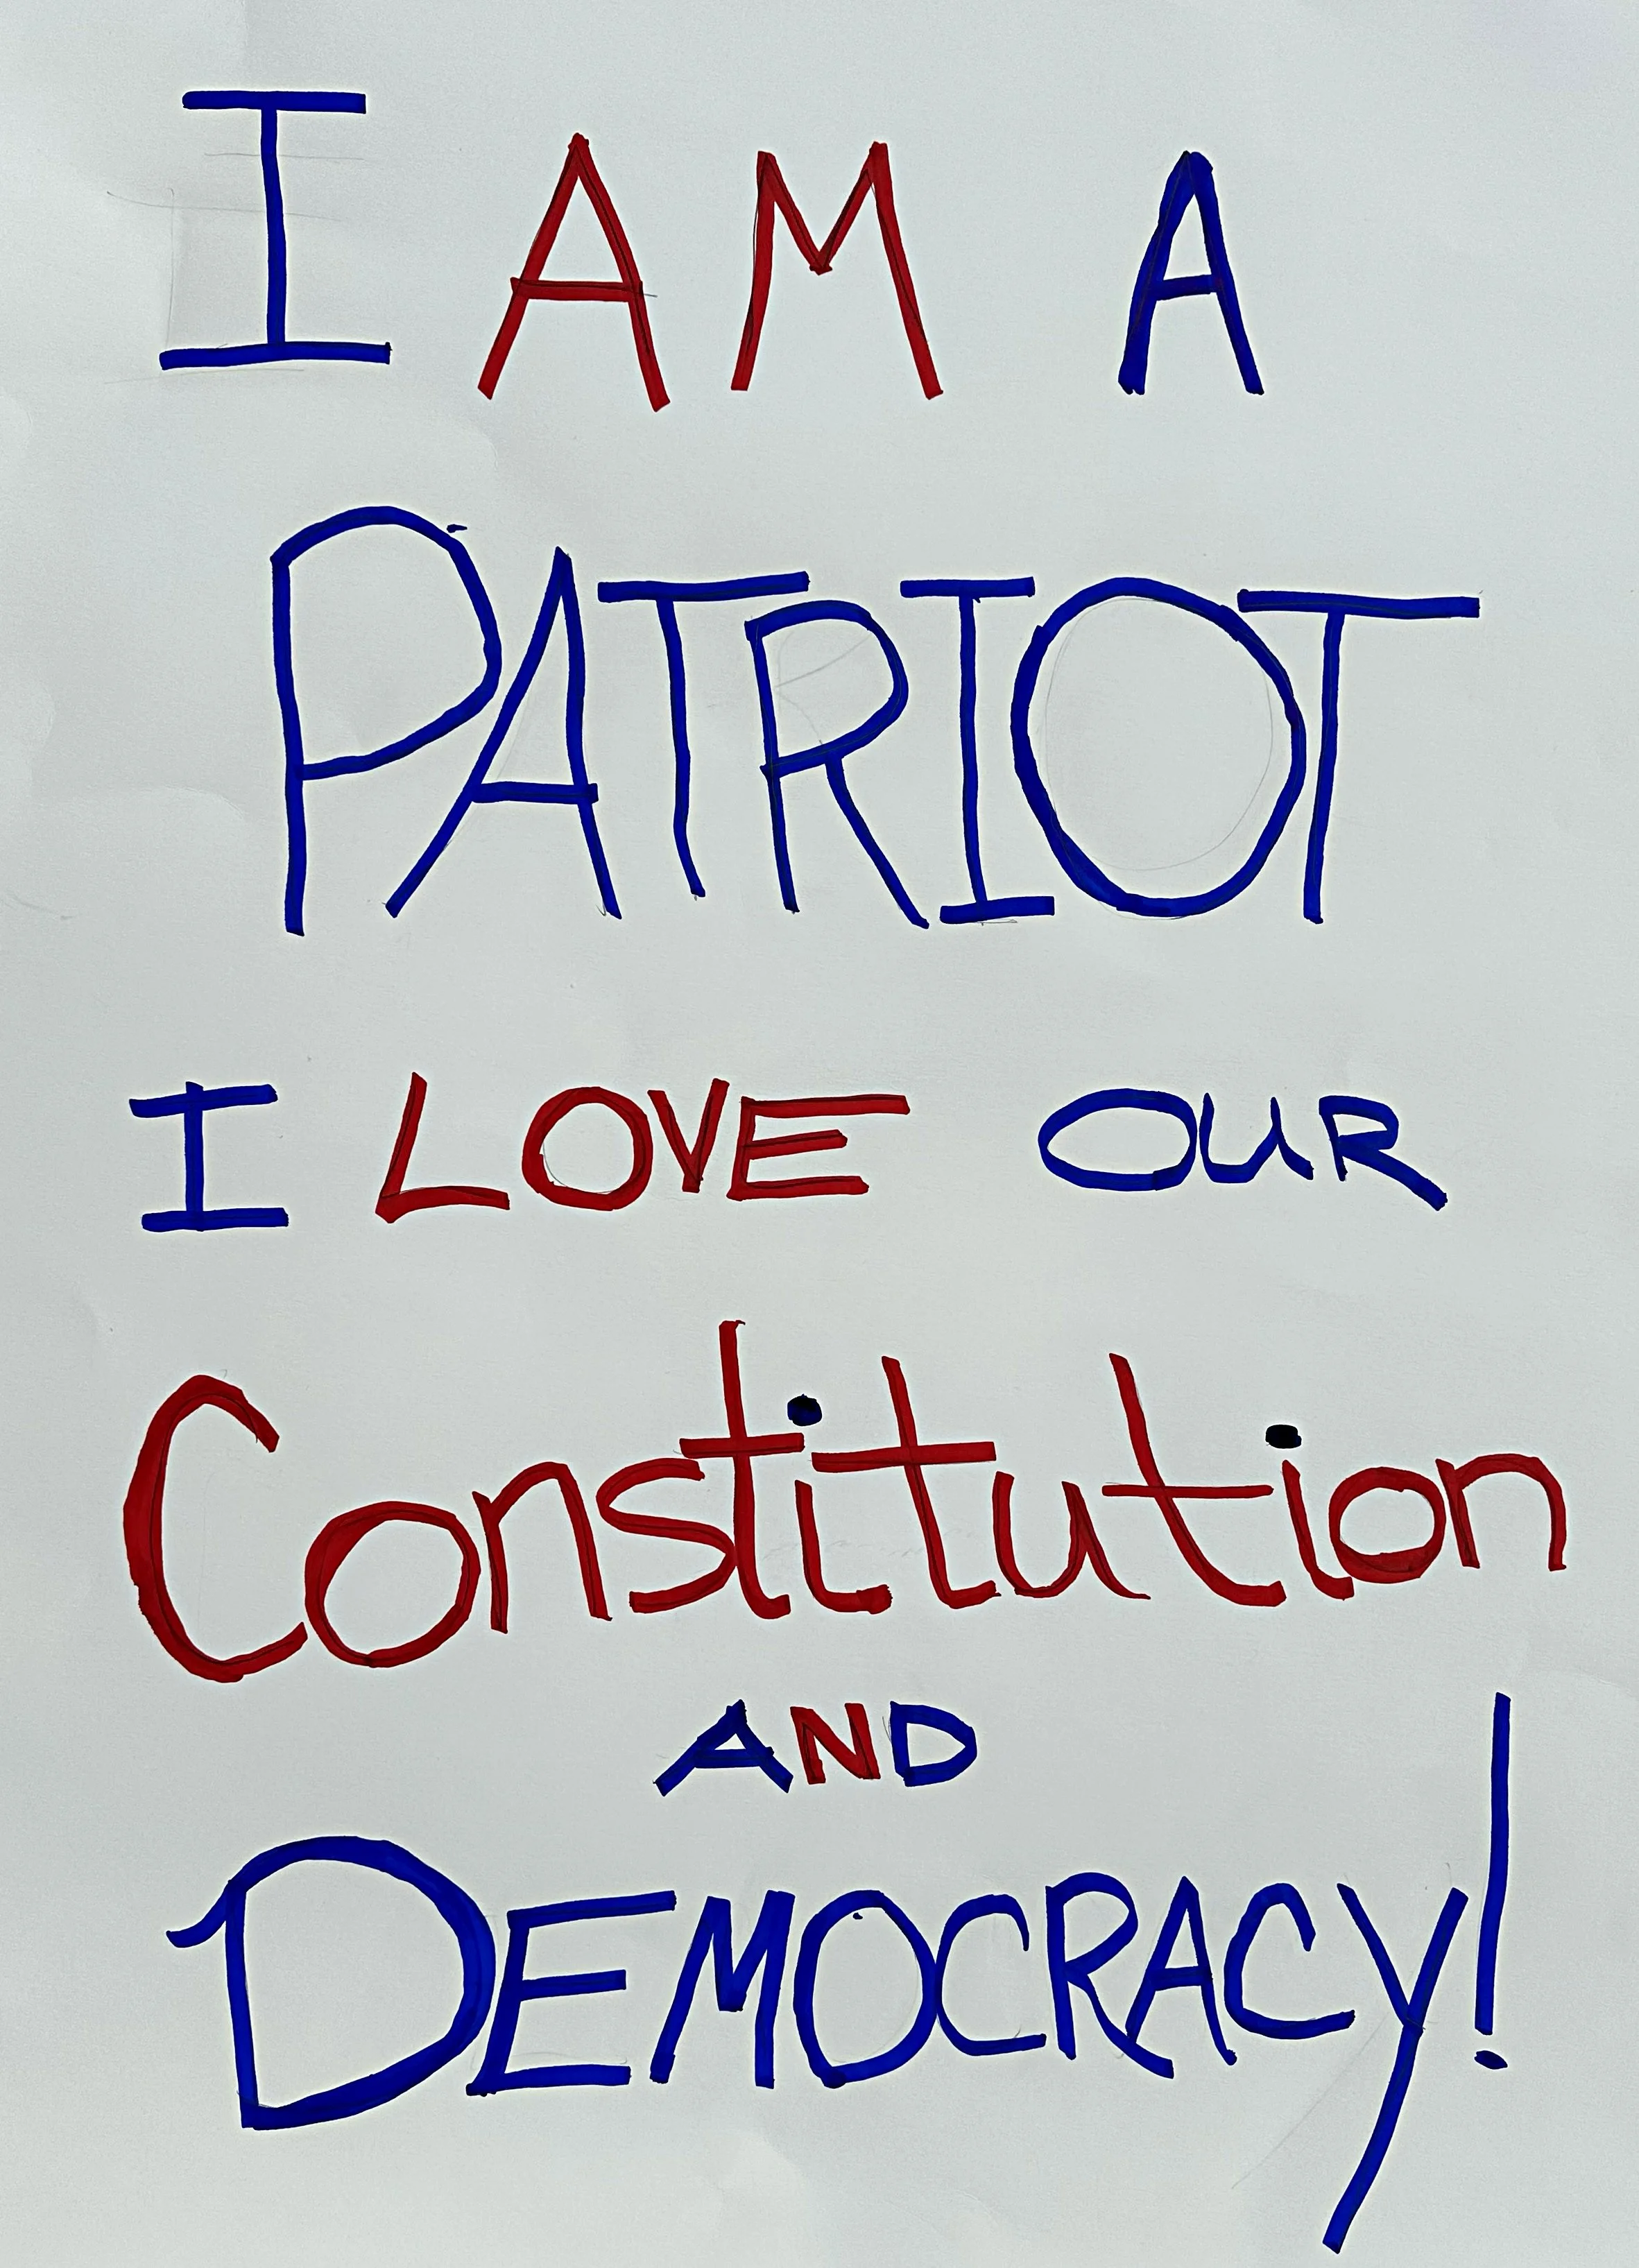 I AM A
PATRIOT
I LOVE OUR
Constitution
AND
DEMOCRACY!